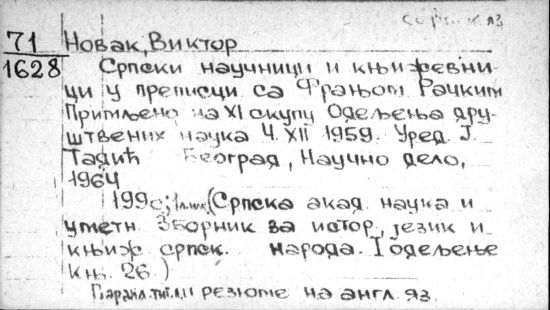 сербск яз
71 Новак, Виктор
1628 Српски научници и књижевни-
ци у преписци са Фрањом Рачким
Примљено на XI скупу Одељења дру-
штвених наука 4. XII 1959. Уред. Ј.
Тадић Београд, Научно дело,
1964
199с; (Српска акад. наука и
уметн. Зборник за истор, језик и
књиж српск. народа. I одељење
књ. 26.)
Паралл. тит. л и резюме на англ. яз.